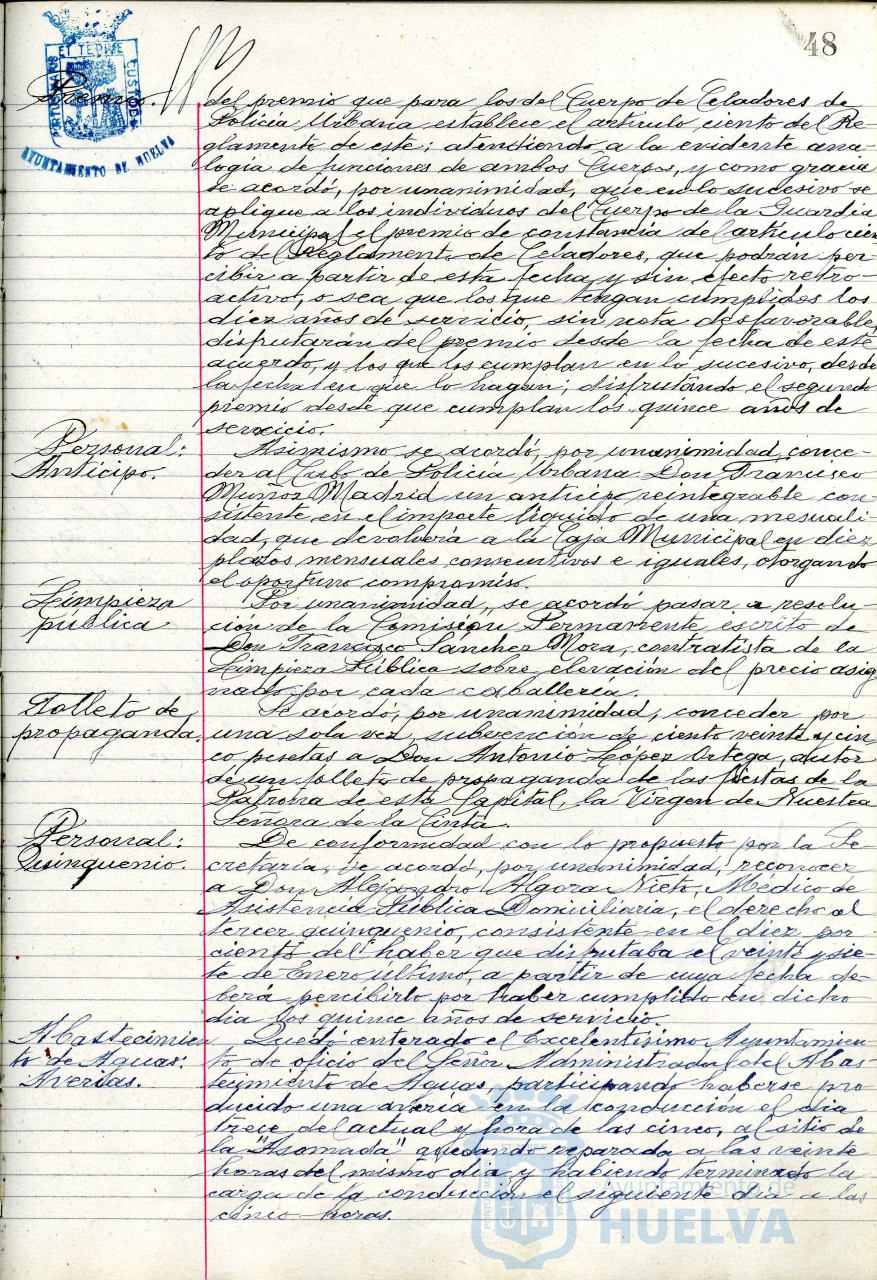 48
PORTUS MARIS
ET TERRE
CUSTODIA
AYUNTAMIENTO DE HUELVA
Premio.
del premio que para los del Cuerpo de Celadores de
Policía Urbana establece el artículo ciento del Re-
glamento de este; atendiendo a la evidente ana-
logía de funciones de ambos Cuerpos, y como gracia
se acordó, por unanimidad, que en lo sucesivo se
aplique a los individuos del Cuerpo de la Guardia
Municipal el premio de constancia del artículo cien
to del Reglamento de Celadores, que podrán per-
cibir a partir de esta fecha y sin efecto retro-
activo, o sea que los que tengan cumplidos los
diez años de servicio, sin nota desfavorable,
disfrutarán del premio desde la fecha de este
acuerdo, y los que los cumplan en lo sucesivo, desde
la fecha en que lo hagan; disfrutando el segundo
premio desde que cumplan los quince años de
servicio.
Personal:
Anticipo.
Asimismo se acordó, por unanimidad, conce-
der al Cabo de Policía Urbana Don Francisco
Muñoz Madrid un anticipo reintegrable con-
sistente en el importe líquido de una mesuali-
dad, que devolverá a la Caja Municipal en diez
plazos mensuales consecutivos e iguales, otorgando
el oportuno compromiso.
Limpieza
pública
Por unanimidad, se acordó pasar a resolu-
ción de la Comisión Permanente escrito de
Don Francisco Sánchez Mora, contratista de la
Limpieza Pública sobre elevación del precio asig
nado por cada caballería.
Folleto de
propaganda.
Se acordó, por unanimidad, conceder por
una sola vez, subvención de ciento veinte y cin
co pesetas a Don Antonio López Ortega, autor
de un folleto de propaganda de las fiestas de la
Patrona de esta Capital, la Virgen de Nuestra
Señora de la Cinta.
Personal:
Quinquenio.
De conformidad con lo propuesto por la Se-
cretaría, se acordó, por unanimidad, reconocer
a Don Alejandro Algora Nieto, Médico de
Asistencia Pública Domiciliaria, el derecho al
tercer quinquenio, consistente en el diez por
ciento del haber que disfrutaba el veinte y sie-
te de Enero último, a partir de cuya fecha de-
berá percibirlo por haber cumplido en dicho
día los quince años de servicio.
Abastecimien
to de Aguas:
Averias.
Quedó enterado el Excelentísimo Ayuntamien-
to de oficio del Señor Administrador del Abas-
tecimiento de Aguas, participando haberse pro-
ducido una avería en la conducción el día
trece del actual y hora de las cinco, al sitio de
la "Asomada" quedando reparada a las veinte
horas del mismo día y habiendo terminado la
carga de la conducción el siguiente día a las
cinco horas.
Ayuntamiento de
HUELVA